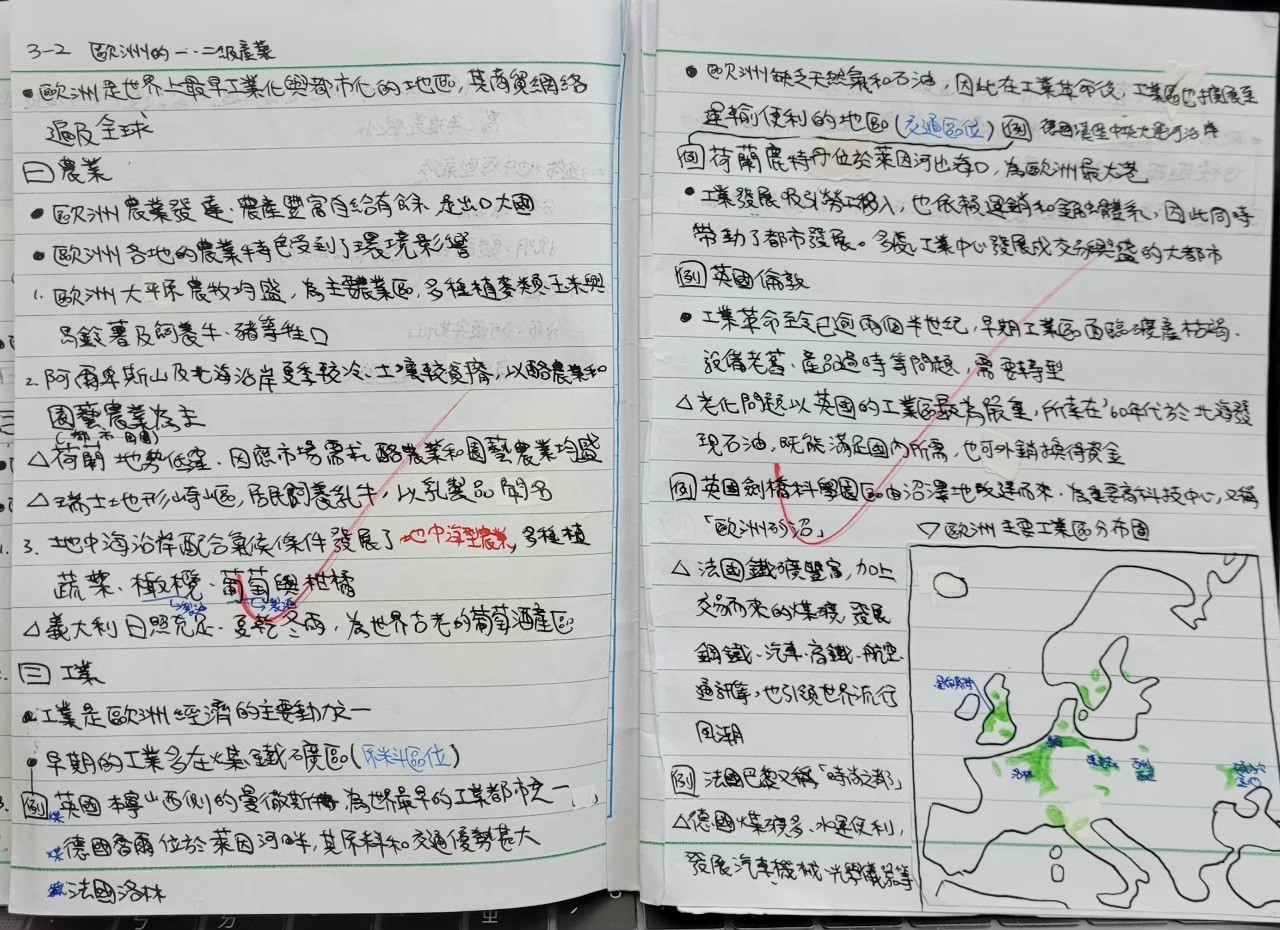 3-2 歐洲的一、二級產業
•歐洲是世界上最早工業化與都市化的地區,其商貿網絡
遍及全球
㊀農業
•歐洲農業發達、農產豐富自給有餘,是出口大國
•歐洲各地的農業特色受到了環境影響
1. 歐洲大平原農牧均盛,為主要農業區,多種植麥類、玉米與
馬鈴薯及飼養牛、豬等牲口
2. 阿爾卑斯山及北海沿岸夏季較冷、土壤較貧瘠,以酪農業和
園藝農業為主
△荷蘭地勢低窪,因應市場需求,酪農業和園藝農業均盛
△瑞士地形崎嶇,居民飼養乳牛,以乳製品聞名
3. 地中海沿岸配合氣侯條件發展了地中海型農業,多種植
蔬菜、橄欖、葡萄與柑橘
→製油 →製酒
△義大利日照充足、夏乾冬雨,為世界古老的葡萄酒產區
㊁工業
•工業是歐洲經濟的主要動力之一
•早期的工業多在煤、鐵礦區(原料區位)
例 煤 英國本寧山西側的曼徹斯特,為世界最早的工業都市之一
煤 德國魯爾位於萊因河畔,其原料和交通優勢甚大
鐵 法國洛林
•歐洲缺乏天然氣和石油,因此在工業革命後,工業區也擴展至
運輸便利的地區(交通區位) 例 德國漢堡中
例 荷蘭鹿特丹位於萊因河出海口,為歐洲最大港
•工業發展吸引勞工移入,也依賴運銷和金融體系,因此同時
帶動了都市發展。多處工業中心發展成交易興盛的大都市
例 英國倫敦
•工業革命至今已逾兩個半世紀,早期工業區面臨礦產枯竭、
設備老舊、產品過時等問題,需要轉型
△老化問題以英國的工業區最為嚴重,所幸在'60年代於北海發
現石油,既能滿足國內所需,也可外銷換得資金
例 英國劍橋科學園區由沼澤地改建而來,為重要高科技中心,又稱
「歐洲矽沼」
▽歐洲主要工業區分布圖
△法國鐵礦豐富,加上
交易而來的煤礦,發展
鋼鐵、汽車、高鐵、航空、
通訊等,也引領世界流行
風潮
例 法國巴黎又稱「時尚之都」
△德國煤礦多、水運便利,
發展汽車、機械、光學儀器等
洛林